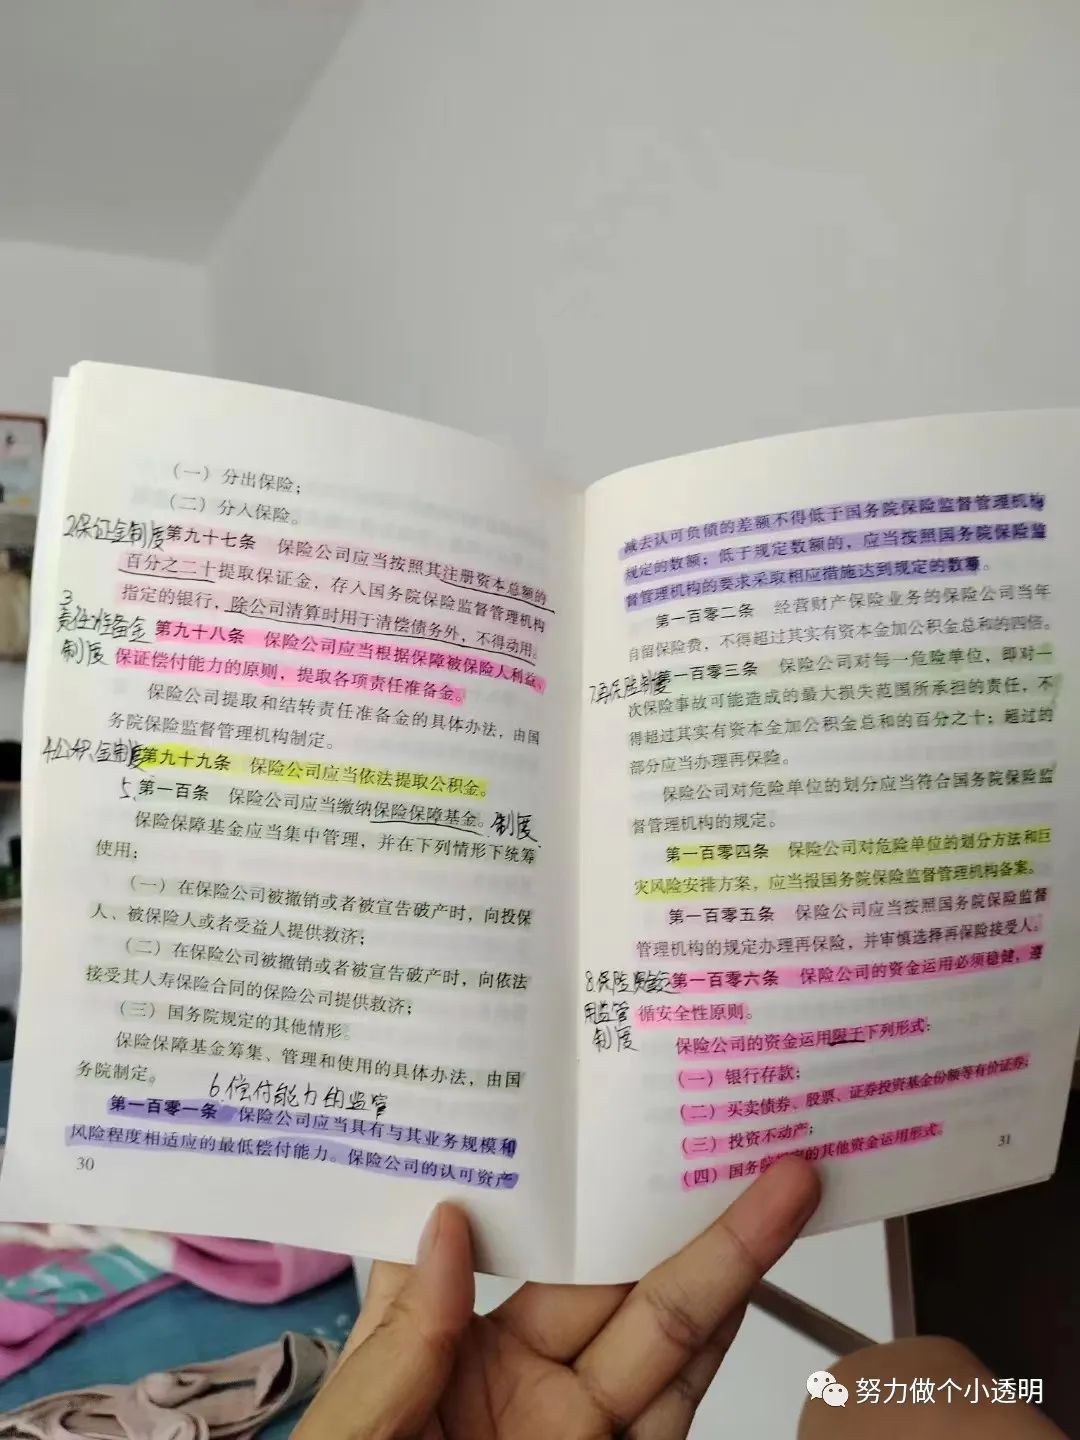 （一）分出保险；
（二）分入保险。
2.保证金制度
第九十七条 保险公司应当按照其注册资本总额的
百分之二十提取保证金，存入国务院保险监督管理机构
指定的银行，除公司清算时用于清偿债务外，不得动用。
3
责任准备金
制度
第九十八条 保险公司应当根据保障被保险人利益、
保证偿付能力的原则，提取各项责任准备金。
保险公司提取和结转责任准备金的具体办法，由国
务院保险监督管理机构制定。
4.公积金制度
第九十九条 保险公司应当依法提取公积金。
5.
第一百条 保险公司应当缴纳保险保障基金。
制度
保险保障基金应当集中管理，并在下列情形下统筹
使用：
（一）在保险公司被撤销或者被宣告破产时，向投保
人、被保险人或者受益人提供救济；
（二）在保险公司被撤销或者被宣告破产时，向依法
接受其人寿保险合同的保险公司提供救济；
（三）国务院规定的其他情形。
保险保障基金筹集、管理和使用的具体办法，由国
务院制定。
6.偿付能力的监管
第一百零一条 保险公司应当具有与其业务规模和
风险程度相适应的最低偿付能力。保险公司的认可资产
30
减去认可负债的差额不得低于国务院保险监督管理机构
规定的数额；低于规定数额的，应当按照国务院保险监
督管理机构的要求采取相应措施达到规定的数额。
第一百零二条 经营财产保险业务的保险公司当年
自留保险费，不得超过其实有资本金加公积金总和的四倍。
7.再保险制度
第一百零三条 保险公司对每一危险单位，即对一
次保险事故可能造成的最大损失范围所承担的责任，不
得超过其实有资本金加公积金总和的百分之十；超过的
部分应当办理再保险。
保险公司对危险单位的划分应当符合国务院保险监
督管理机构的规定。
第一百零四条 保险公司对危险单位的划分方法和巨
灾风险安排方案，应当报国务院保险监督管理机构备案。
第一百零五条 保险公司应当按照国务院保险监督
管理机构的规定办理再保险，并审慎选择再保险接受人。
8.保险资金运
用监管
制度
第一百零六条 保险公司的资金运用必须稳健，遵
循安全性原则。
保险公司的资金运用限于下列形式：
（一）银行存款；
（二）买卖债券、股票、证券投资基金份额等有价证券；
（三）投资不动产；
（四）国务院规定的其他资金运用形式。
31
努力做个小透明